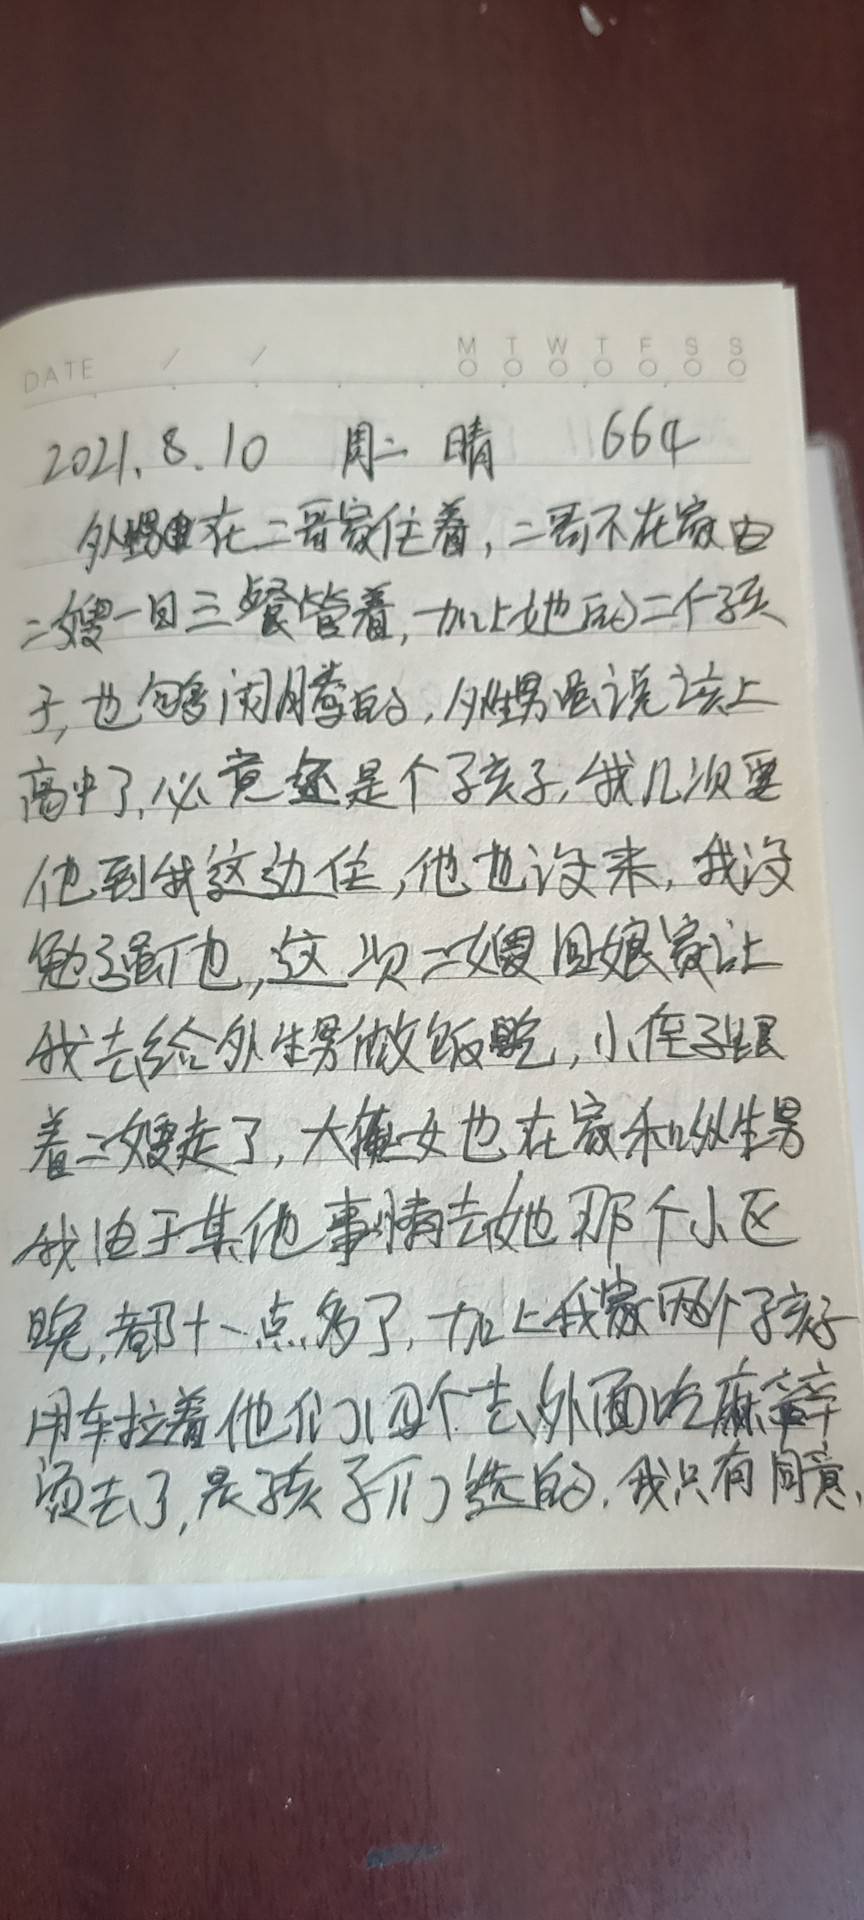 DATE / / M T W T F S S
2021.8.10 周二 晴 664
外甥在二哥家住着，二哥不在家由
二嫂一日三餐管着，加上她的二个孩
子，也够闹腾的，外甥虽说该上
高中了，必竟还是个孩子，我几次要
他到我这边住，他也没来，我没
勉强他，这次二嫂回娘家让
我去给外甥做饭吃，小侄子跟
着二嫂走了，大侄女也在家和外甥
我由于其他事情去她那个小区
晚，都十一点多了，加上我家两个孩子
用车拉着他们四个去外面吃麻辣
烫去了，是孩子们选的，我只有同意，